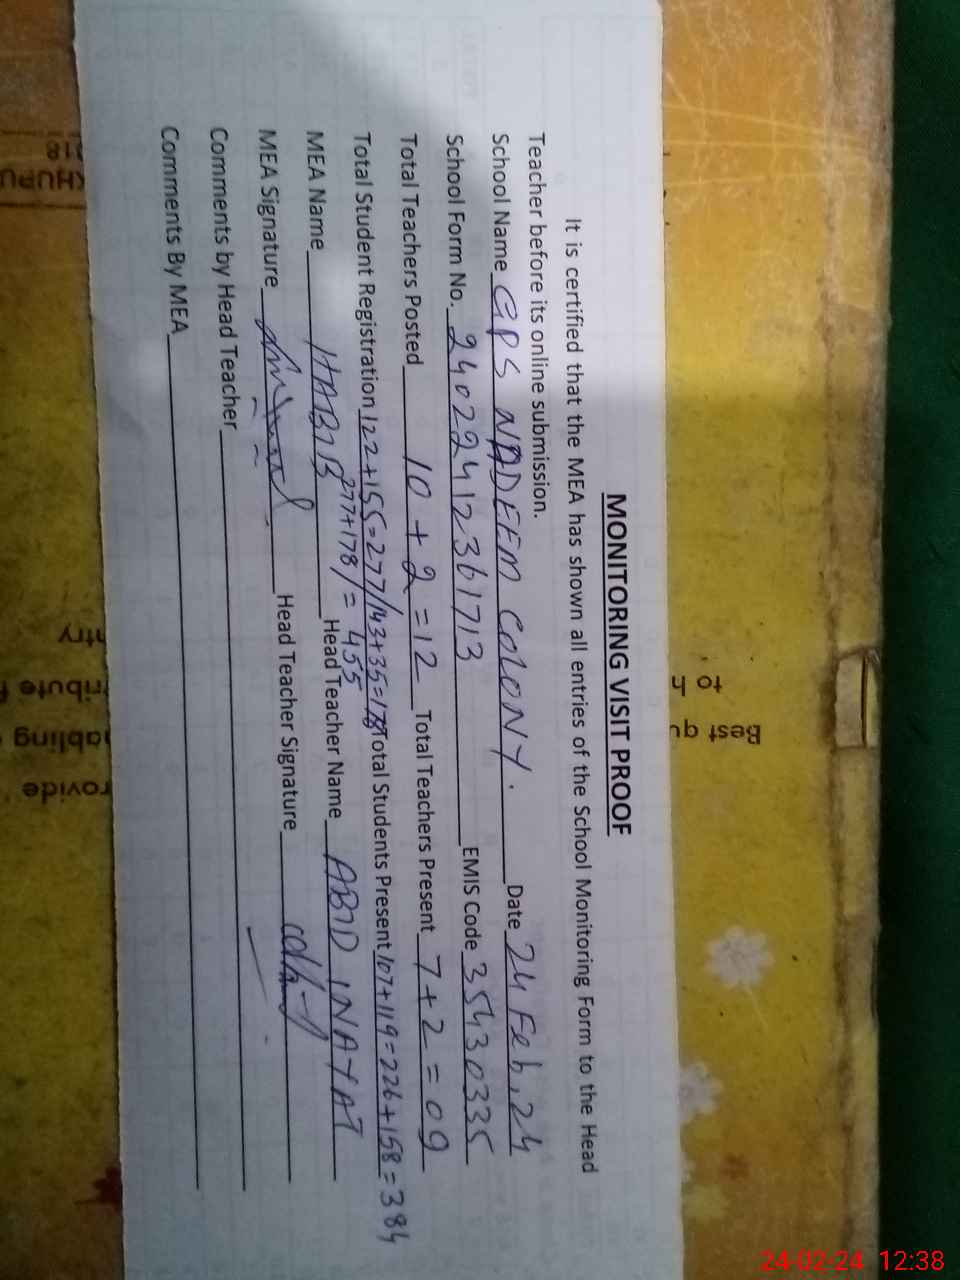 MONITORING VISIT PROOF
It is certified that the MEA has shown all entries of the School Monitoring Form to the Head
Teacher before its online submission.
School Name GPS NADEEM COLONY. Date 24 Feb, 24
School Form No. 24022412361713 EMIS Code 35430335
Total Teachers Posted 10 + 2 = 12 Total Teachers Present 7 + 2 = 09
Total Student Registration 122+155=277/143+35=178 Total Students Present 107+119=226+158=384
277+178/= 455
MEA Name HABIB Head Teacher Name ABID INAYAT
MEA Signature Head Teacher Signature
Comments by Head Teacher
Comments By MEA
to h
Best qu
018
KHUPU
ntry
tribute
abling
rovide
24-02-24 12:38